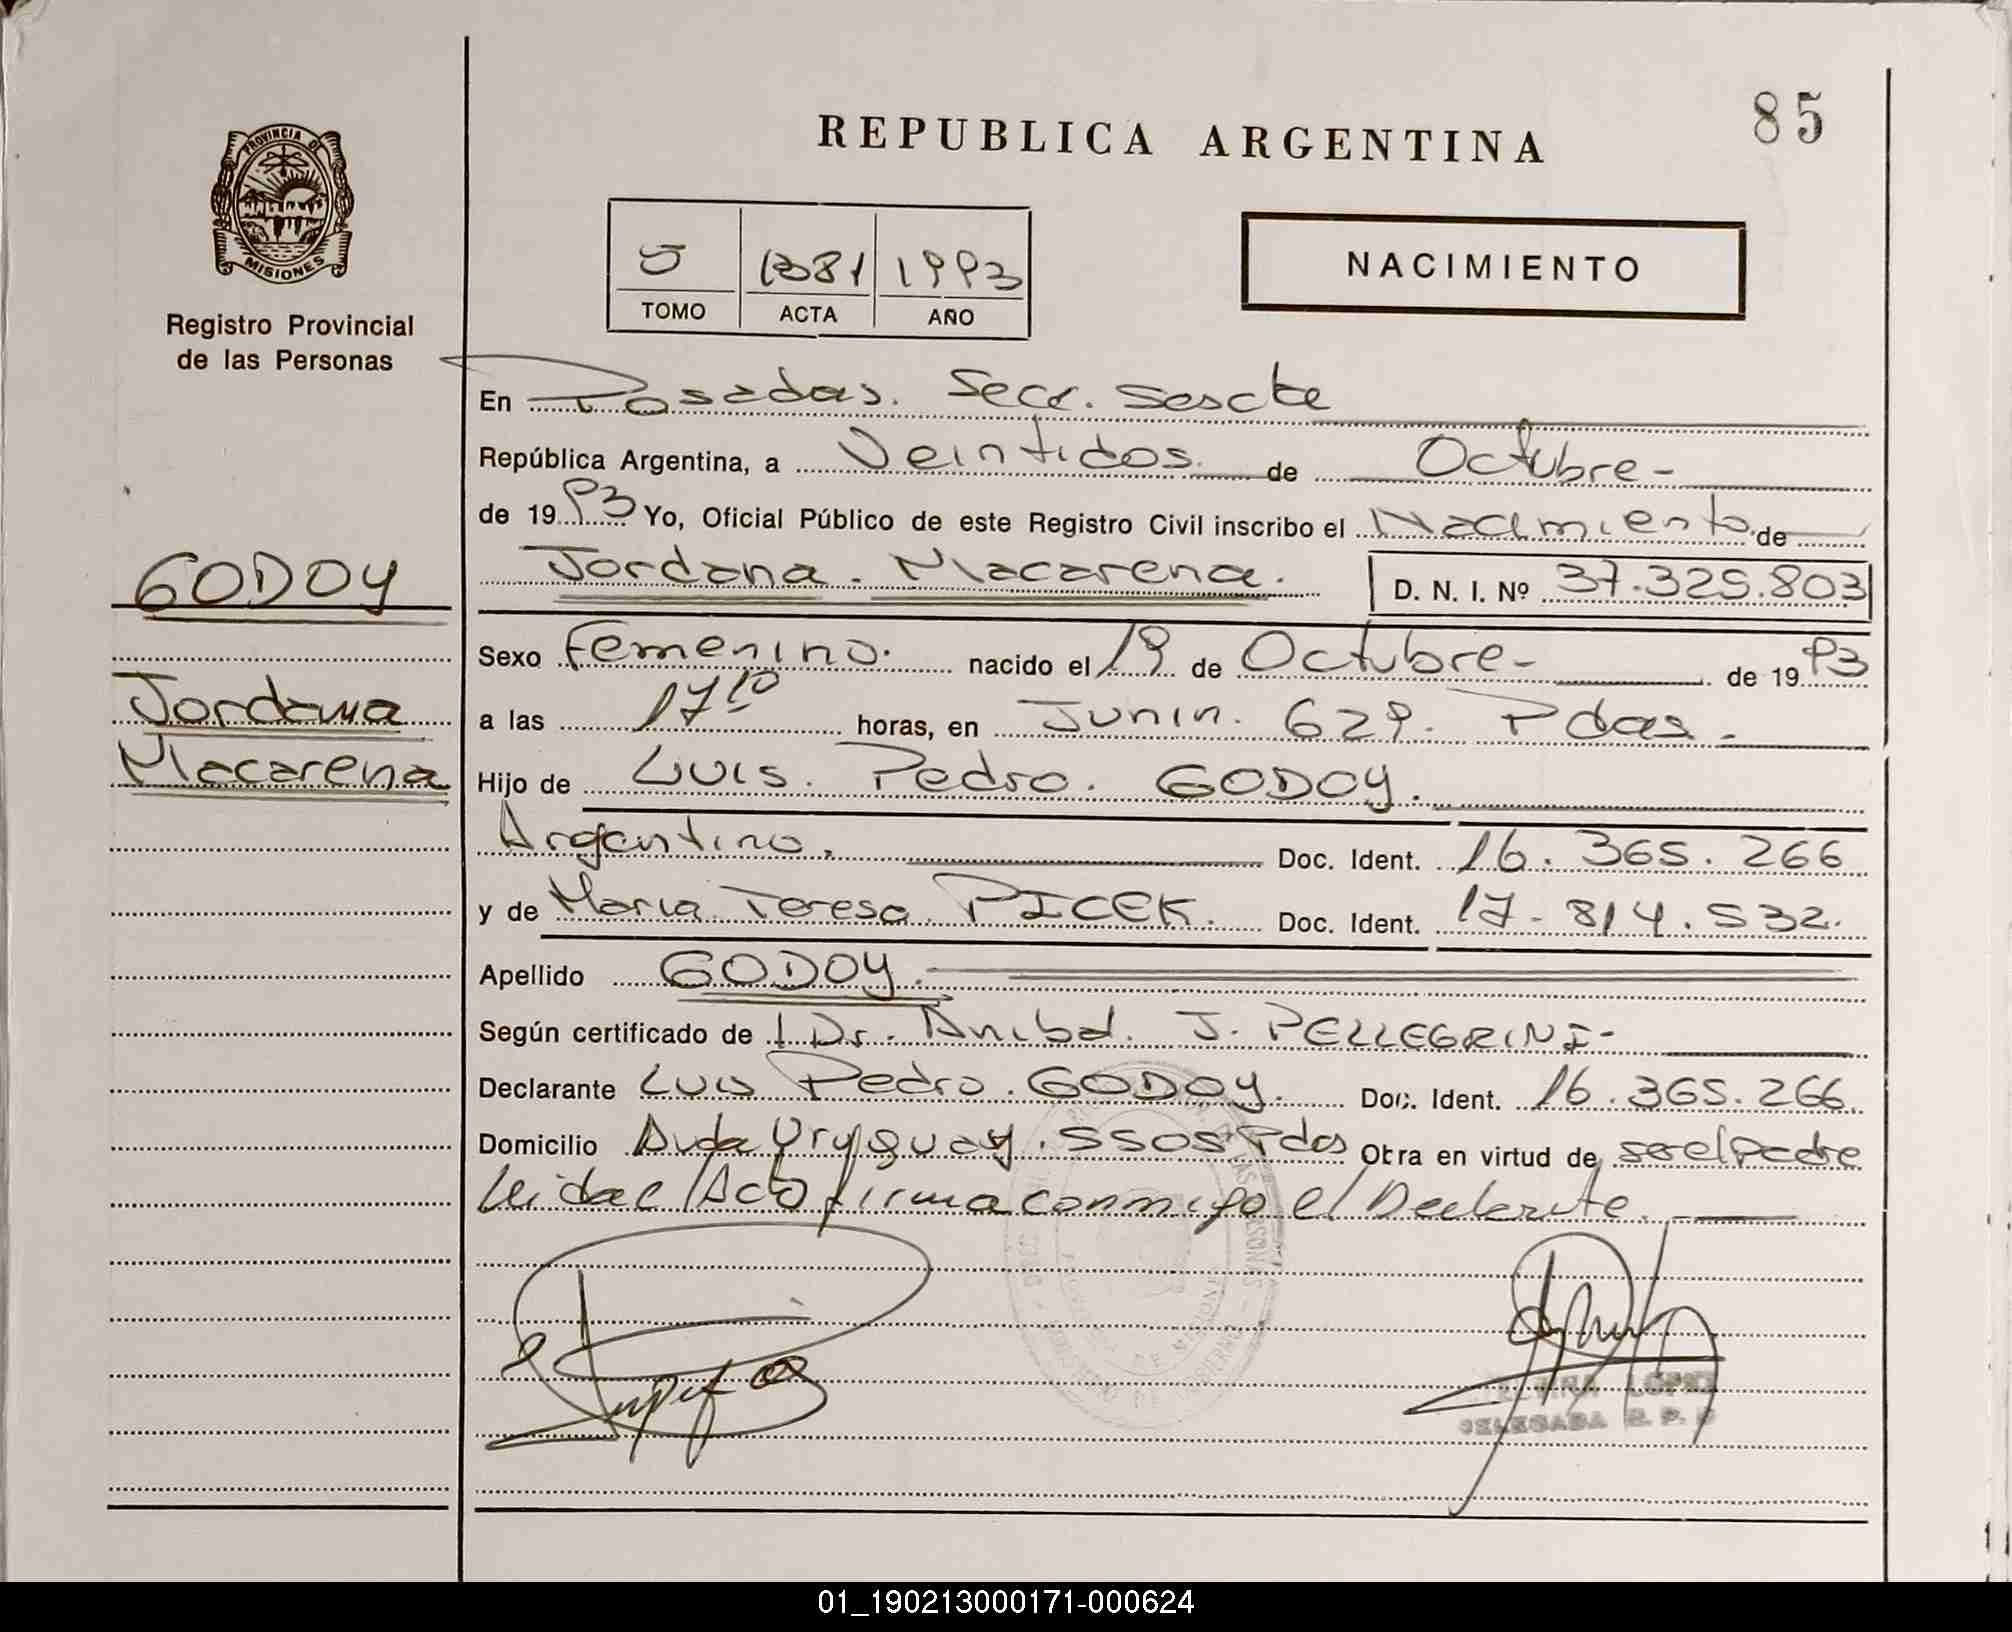 REPUBLICA ARGENTINA
85
PROVINCIA DE
MISIONES
Registro Provincial
de las Personas
5 1381 1993
TOMO ACTA AÑO
NACIMIENTO
En Posadas. Secc. Sescta
República Argentina, a Veintidos de Octubre-
de 1993 Yo, Oficial Público de este Registro Civil inscribo el Nacimiento de
Jordana. Macarena. D. N. I. Nº 37.325.803
GODOY
Jordana
Macarena
Sexo Femenino. nacido el 19 de Octubre- de 1993
a las 17 10 horas, en Junin. 629. Pdas.-
Hijo de Luis. Pedro. GODOY.
Argentino. Doc. Ident. 16. 365. 266
y de Maria Teresa PICEK. Doc. Ident. 17-814.532.
Apellido GODOY.
Según certificado de Dr. Anibal. J. PELLEGRINI-
Declarante Luis Pedro. GODOY. Doc. Ident. 16.365.266.
Domicilio Avda Uruguay. 5505 Pdas Obra en virtud de ser el Padre
Leida el Acta firma conmigo el Declarante.
LOPEZ
DELEGADA R. P. P
01_190213000171-000624